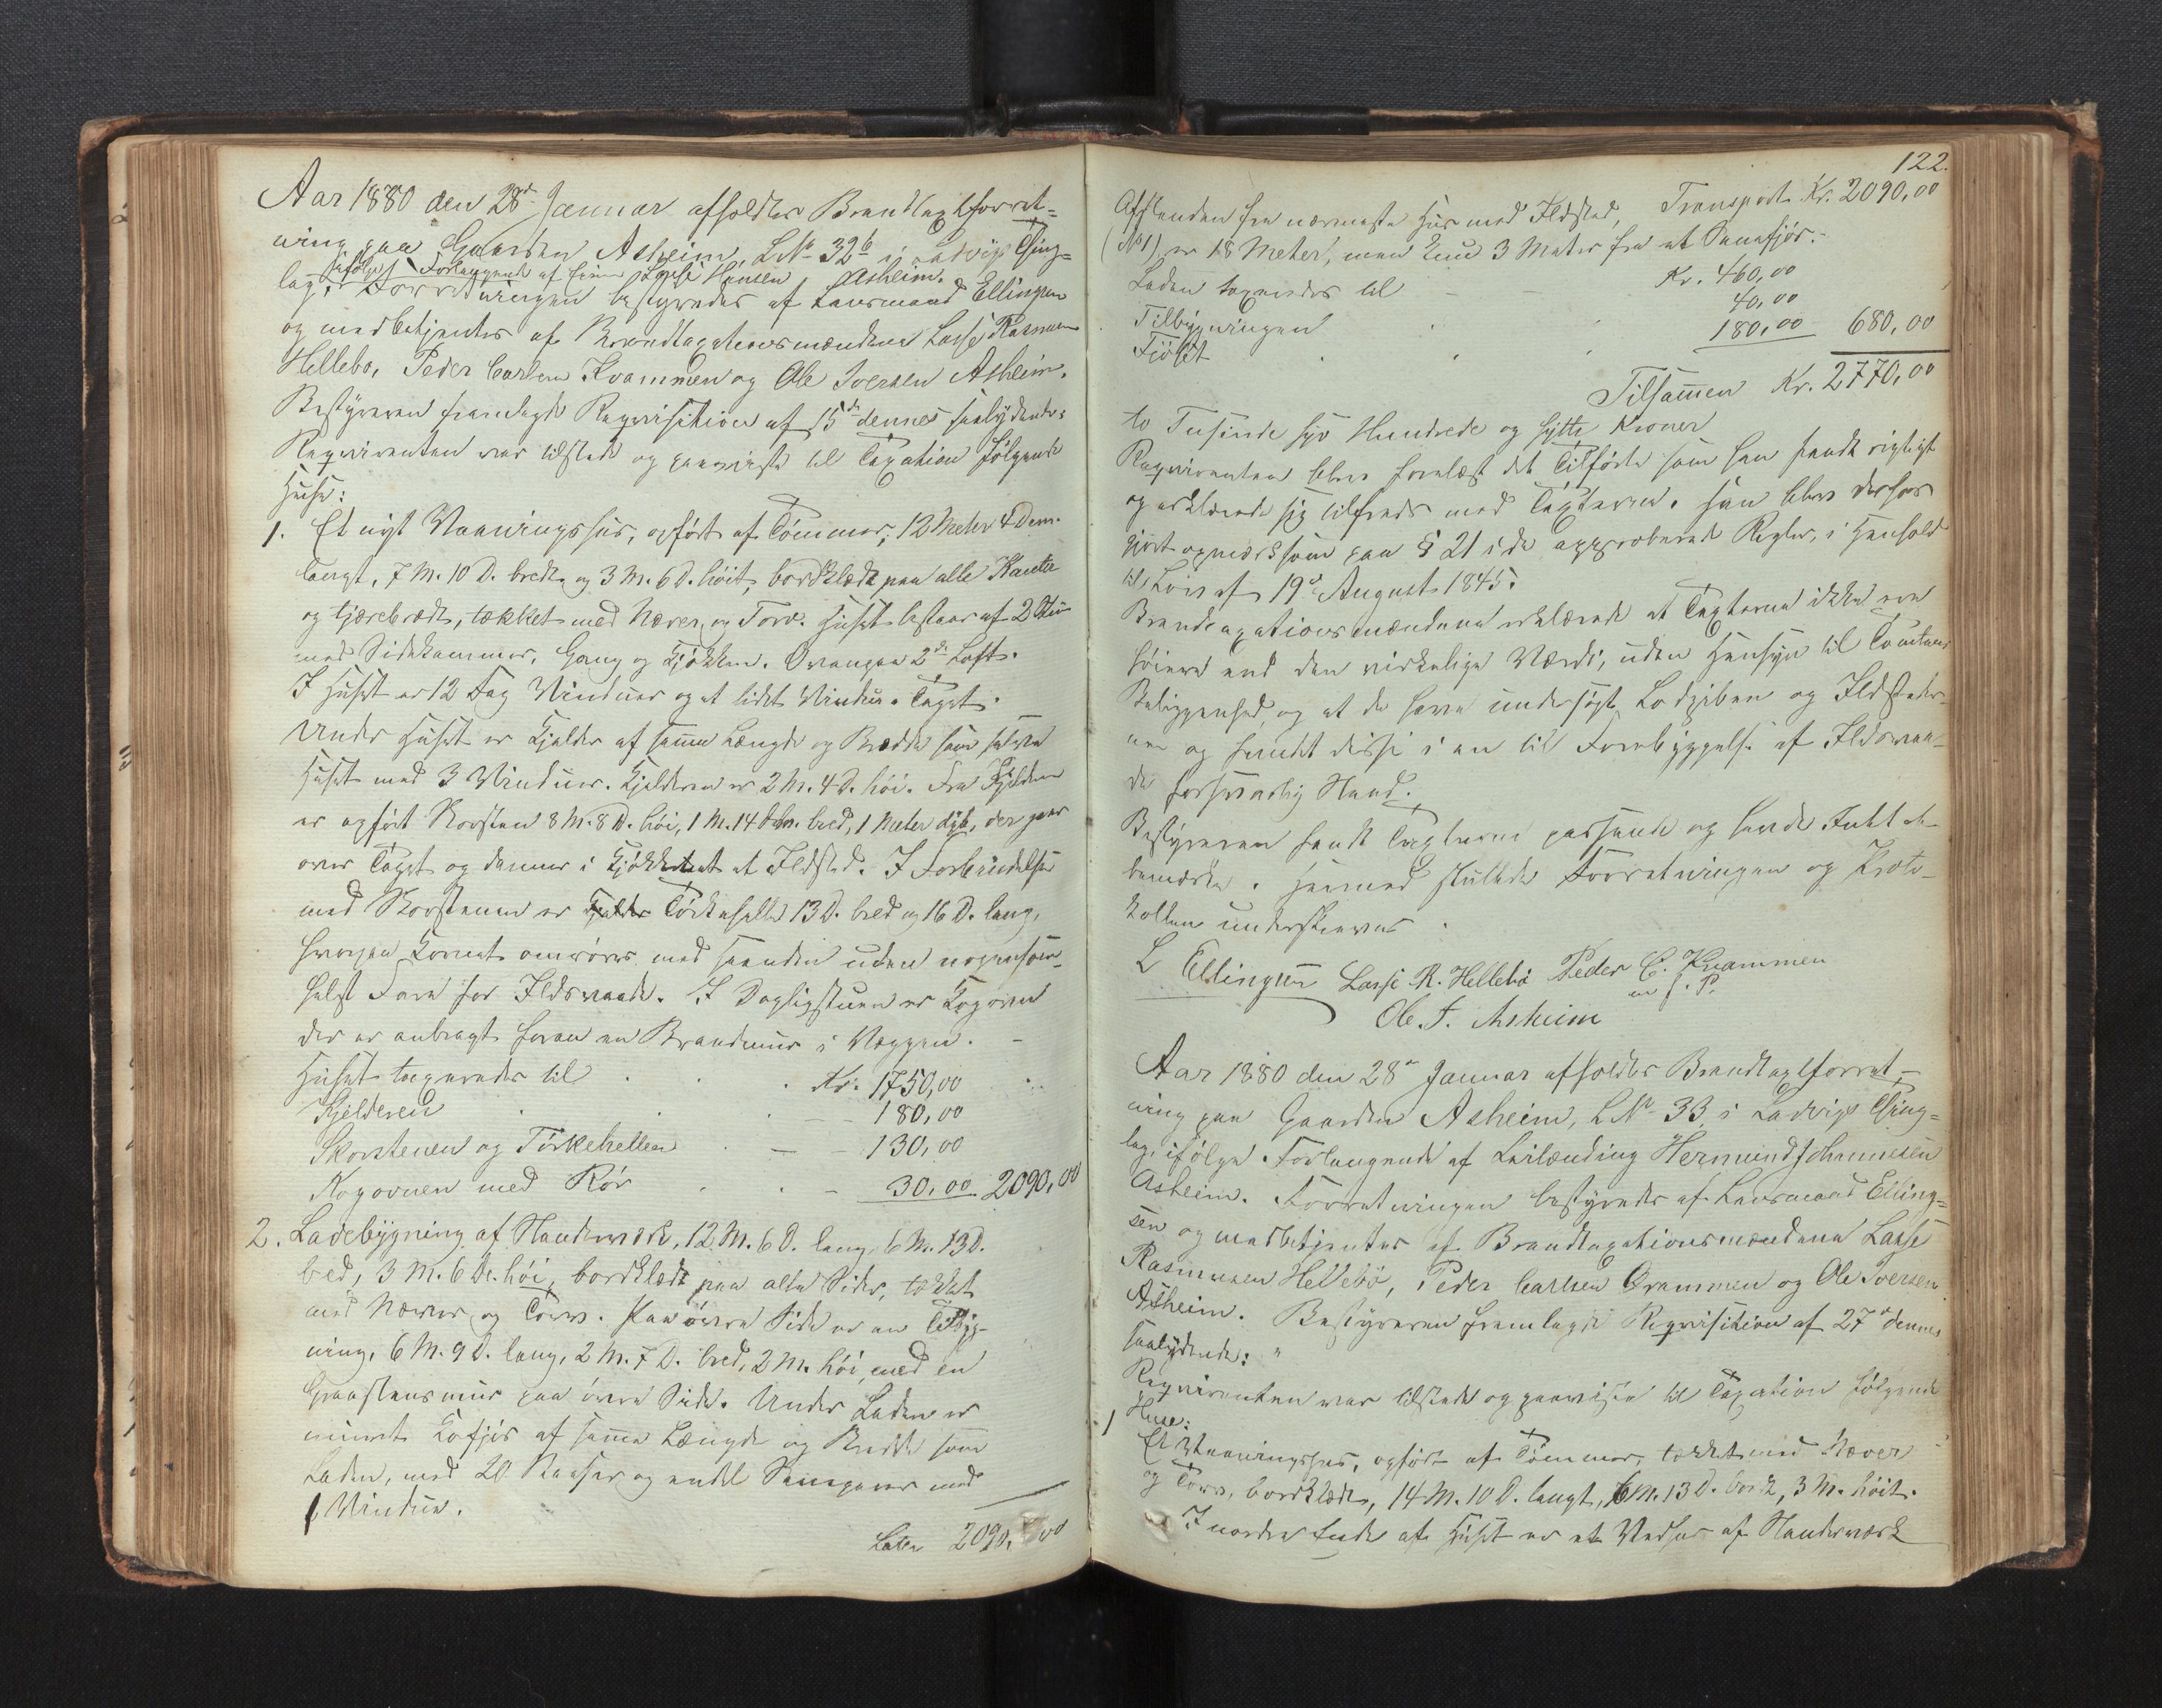 Aar 1880 den 28de Januar afholdtes Brandtaxtforret-
ning paa Gaarden Asheim, L No 32b i Ladvigs Thing-
lag, ifølge Forlangende af Eieren Lasse Hansen Asheim.
Forretningen bestyredes af Lensmand Ellingsen
og medbetjentes af Brandtaxationsmændene Lasse Rasmusen
Hellebø, Peder Carlsen Kvammen og Ole Iversen Asheim.
Bestyreren fremlagde Reqvisition af 15de dennes saalydende:
Reqvirenten var tilstede og paaviste til Taxation følgende
Huse:
1. Et nyt Vaaningshus, opført af Tømmer, 12 Meter 4 Dcm.
langt, 7 M. 10 D. bredt og 3 M. 6 D. høit, bordklædt paa alle Kanter
og tjærebrædt, tækket med Næver og Torv. Huset bestaar af 2 Stuer
med Sidekammer, Gang og Kjøkken. Ovenpaa 2de Loft.
I Huset er 12 Fag Vinduer og et lidet Vindue i Taget.
Under Huset er Kjelder af samme Længde og Bredde som selve
Huset med 3 Vinduer. Kjelderen er 2 M. 4 D. høi. Fra Kjelderen
er opført Skorsten 8 M. 8 D. høi, 1 M. 14 Dcm. bred, 1 Meter dyb, der gaar
over Taget og danner i Kjøkkenet et Ildsted. I Forbindelse
med Skorstenen er Tørkehelle 13 D. bred og 16 D. lang,
hvorpaa Kornet omrøres med Hænder uden nogensom-
helst Fare for Ildsvaade. I Dagligstuen er Kogovn
der er anbragt foran en Brandmur i Væggen.
Huset taxeredes til . . . Kr. 1750,00
Kjelderen . . . - - 180,00
Skorstenen og Tørkehellen . - - 130,00
Kogovnen med Rør . . - 30,00 2090,00
2. Ladebygning af Stavværk, 12 M. 6 D. lang, 6 M. 13 D.
bred, 3 M. 6 De. høi, bordklædt paa alle Sider, tækket
med Næver og Torv. Paa øvre Side er en Tilbyg-
ning, 6 M. 9 D. lang, 2 M. 7 D. bred, 2 M. høi, med en
Graastensmur paa øvre Side. Under Laden er
muret Kofjøs af samme Længde og Bredde som
Laden, med 20 Baaser og endel med
1 Vindue.
Lateris 2090,00
122.
Afstanden fra nærmeste Hus med Ildsted, Transport Kr. 2090,00
(No 1) er 18 Meter, men kun 3 Meter fra et Sauefjøs.
Laden taxeredes til - - Kr. 460,00
Tilbygningen . . 40,00
Fjøset . . . 180,00 680,00
Tilsammen Kr. 2770,00
to Tusinde syv Hundrede og sytti Kroner
Reqvirenten blev forelæst det Tilførte som han fandt rigtigt
og erklærede sig tilfreds med Taxterne. Han blev derhos
gjort opmærksom paa § 21 i de approberede Regler, i Henhold
til Lov af 19de August 1845.
Brandtaxationsmændene erklærede at Taxterne ikke ere
høiere end den virkelige Værdi, uden Hensyn til Tomtens
Beliggenhed, og at de have undersøgt Ladpiben og Ildstederne
ne og fundet disse i en til Forebyggelse af Ildsvaa-
de forsvarlig Stand.
Bestyreren fandt Taxterne passende og havde Intet at
bemærke. Hermed sluttede Forretningen og Proto-
kollen underskreves.
L Ellingsen Lasse R. Hellebø Peder C. Kvammen
m. f. P.
Ole. I. Asheim
Aar 1880 den 28de Januar afholdtes Brandtaxtforret-
ning paa Gaarden Asheim, L No 33 i Ladvigs Thing-
lag, ifølge Forlangende af Leilænding Hermund Johannesen
Asheim. Forretningen bestyredes af Lensmand Elling-
sen og medbetjentes af Brandtaxationsmændene Lasse
Rasmusen Hellebø, Peder Carlsen Qvammen og Ole Iversen
Asheim. Bestyreren fremlagde Reqvisition af 27de dennes
saalydende: "
Reqvirenten var tilstede og paaviste til Taxation følgende
Huse:
1 Et Vaaningshus, opført af Tømmer, tækket med Næver
og Torv, bordklædt, 14 M. 10 D. langt, 6 M. 13 D. bredt, 3 M. høit.
I nordre Ende af Huset er et Vedhus af Stavværk